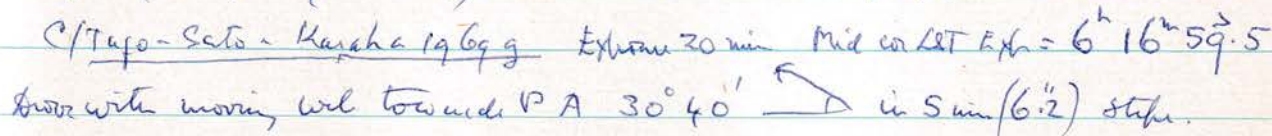 C/Tago-Sato-Kosaka 1969g Exposure 20 min Mid LST Exp = 6h 16m 59s.5
with moving towards P A 30° 40' in 5 min (6".2) steps.